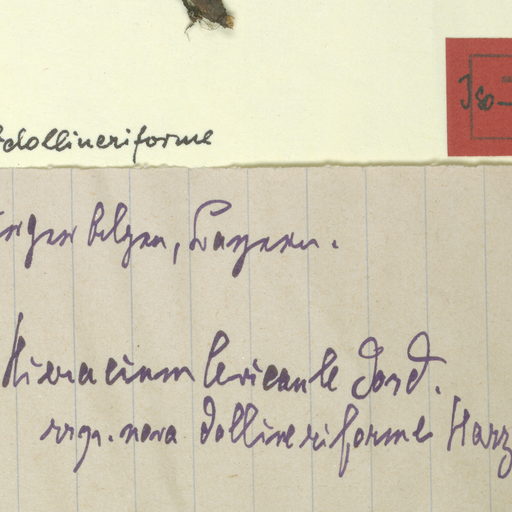 dollineriforme
Iso-
Bayern.
Hieracium levicaule Jord.
nova dollineriforme Harz